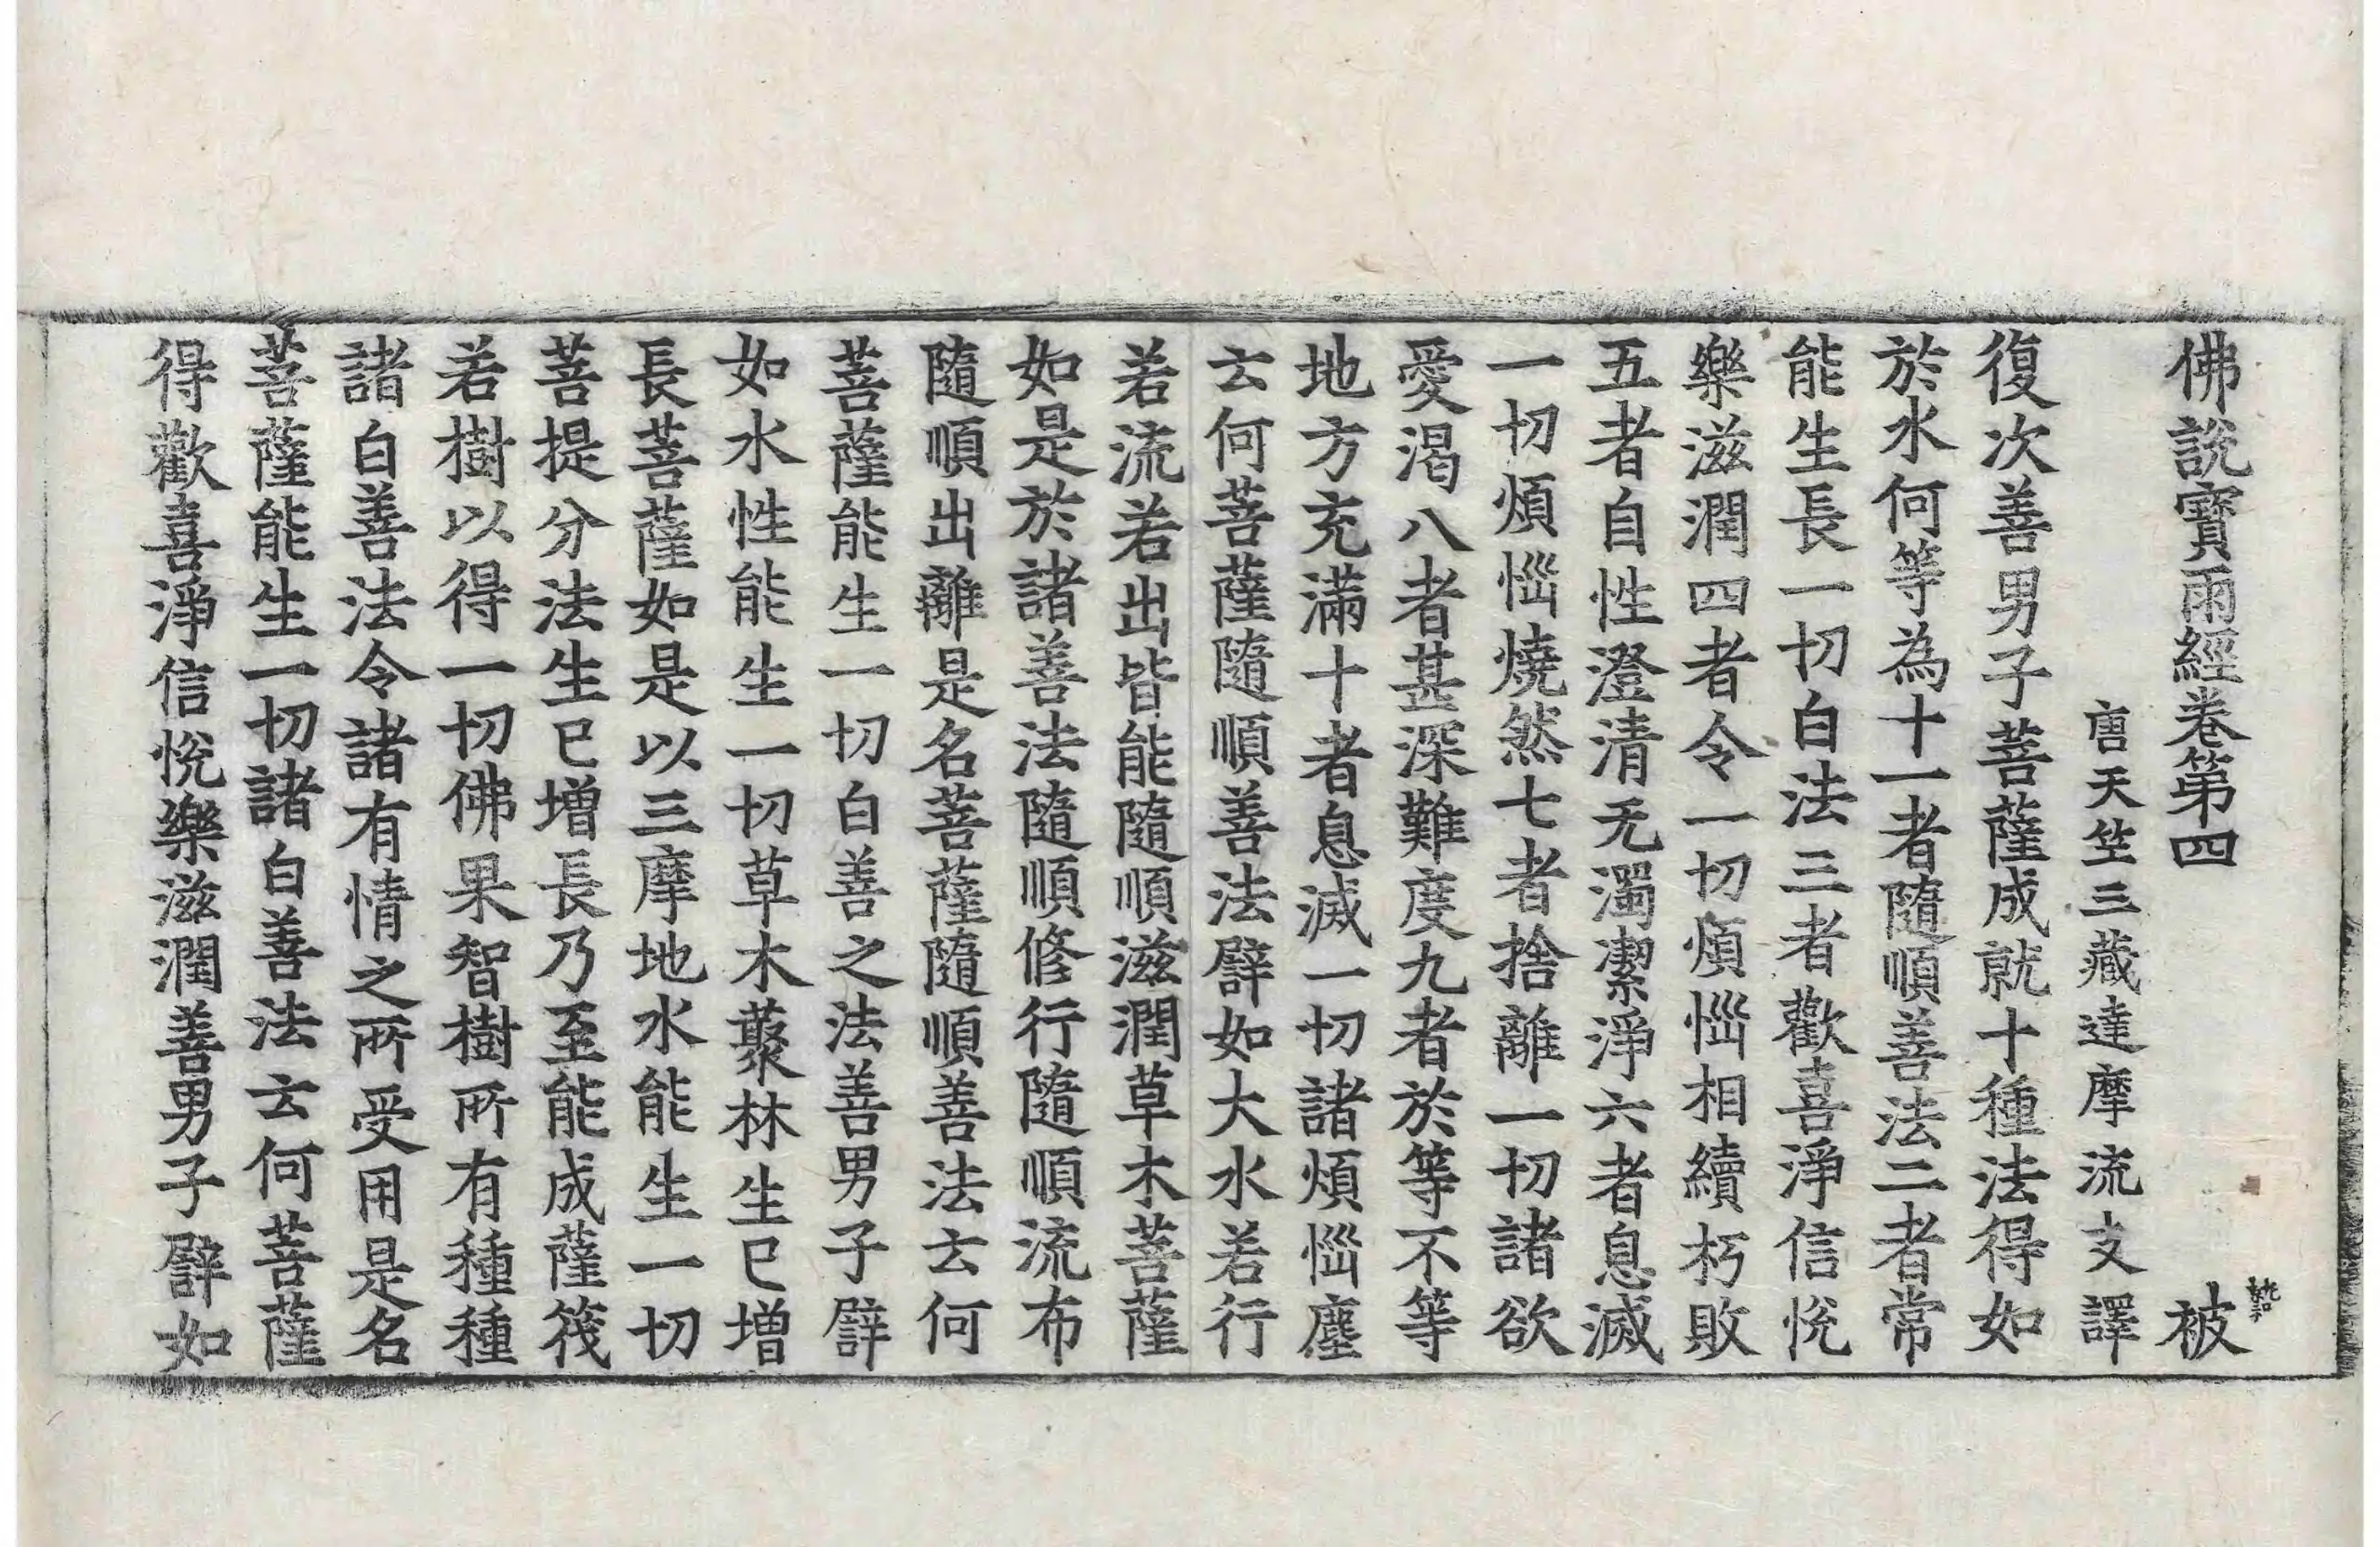 佛說寶雨經卷第四 被
唐天竺三藏達摩流支譯
復次善男子菩薩成就十種法得如
於水何等為十一者隨順善法二者常
能生長一切白法三者歡喜淨信悅
樂滋潤四者令一切煩惱相續朽敗
五者自性澄清无濁潔淨六者息滅
一切煩惱燒然七者捨離一切諸欲
愛渴八者甚深難度九者於等不等
地方充滿十者息滅一切諸煩惱塵
云何菩薩隨順善法譬如大水若行
若流若出皆能隨順滋潤草木菩薩
如是於諸善法隨順修行隨順流布
隨順出離是名菩薩隨順善法云何
菩薩能生一切白善之法善男子譬
如水性能生一切草木藂林生已增
長菩薩如是以三摩地水能生一切
菩提分法生已增長乃至能成薩筏
若樹以得一切佛果智樹所有種種
諸白善法令諸有情之所受用是名
菩薩能生一切諸白善法云何菩薩
得歡喜淨信悅樂滋潤善男子譬如